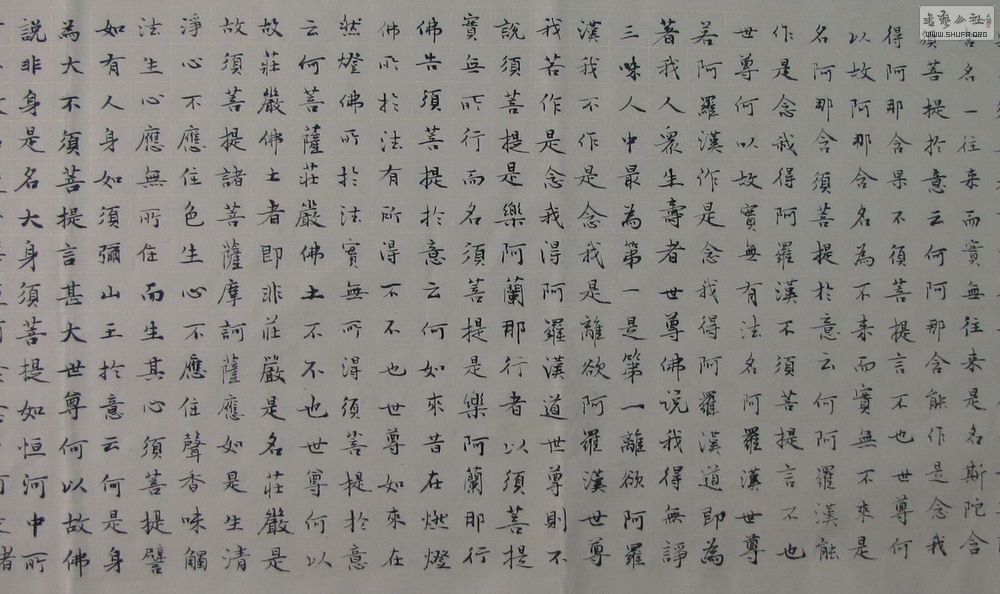 含名一往来而實無往来是名斯陀含
須菩提於意云何阿那含能作是念我
得阿那含果不須菩提言不也世尊何
以故阿那含名為不来而實無不來是
名阿那含須菩提於意云何阿羅漢能
作是念我得阿羅漢不須菩提言不也
世尊何以故實無有法名阿羅漢世尊
若阿羅漢作是念我得阿羅漢道即為
著我人衆生壽者世尊佛说我得無諍
三昧人中最為第一是第一離欲阿羅
漢我不作是念我是離欲阿羅漢世尊
我若作是念我得阿羅漢道世尊則不
說須菩提是樂阿蘭那行者以須菩提
實無所行而名須菩提是樂阿蘭那行
佛告須菩提於意云何如來昔在燃燈
佛所於法有所得不不也世尊如來在
然燈佛所於法實無所得須菩提於意
云何菩薩莊嚴佛土不不也世尊何以
故莊嚴佛土者即非莊嚴是名莊嚴是
故須菩提諸菩薩摩訶薩應如是生清
淨心不應住色生心不應住聲香味觸
法生心應無所住而生其心須菩提譬
如有人身如須彌山王於意云何是身
為大不須菩提言甚大世尊何以故佛
說非身是名大身須菩提如恒河中所
者
書藝公社
WWW.SHUFA.ORG